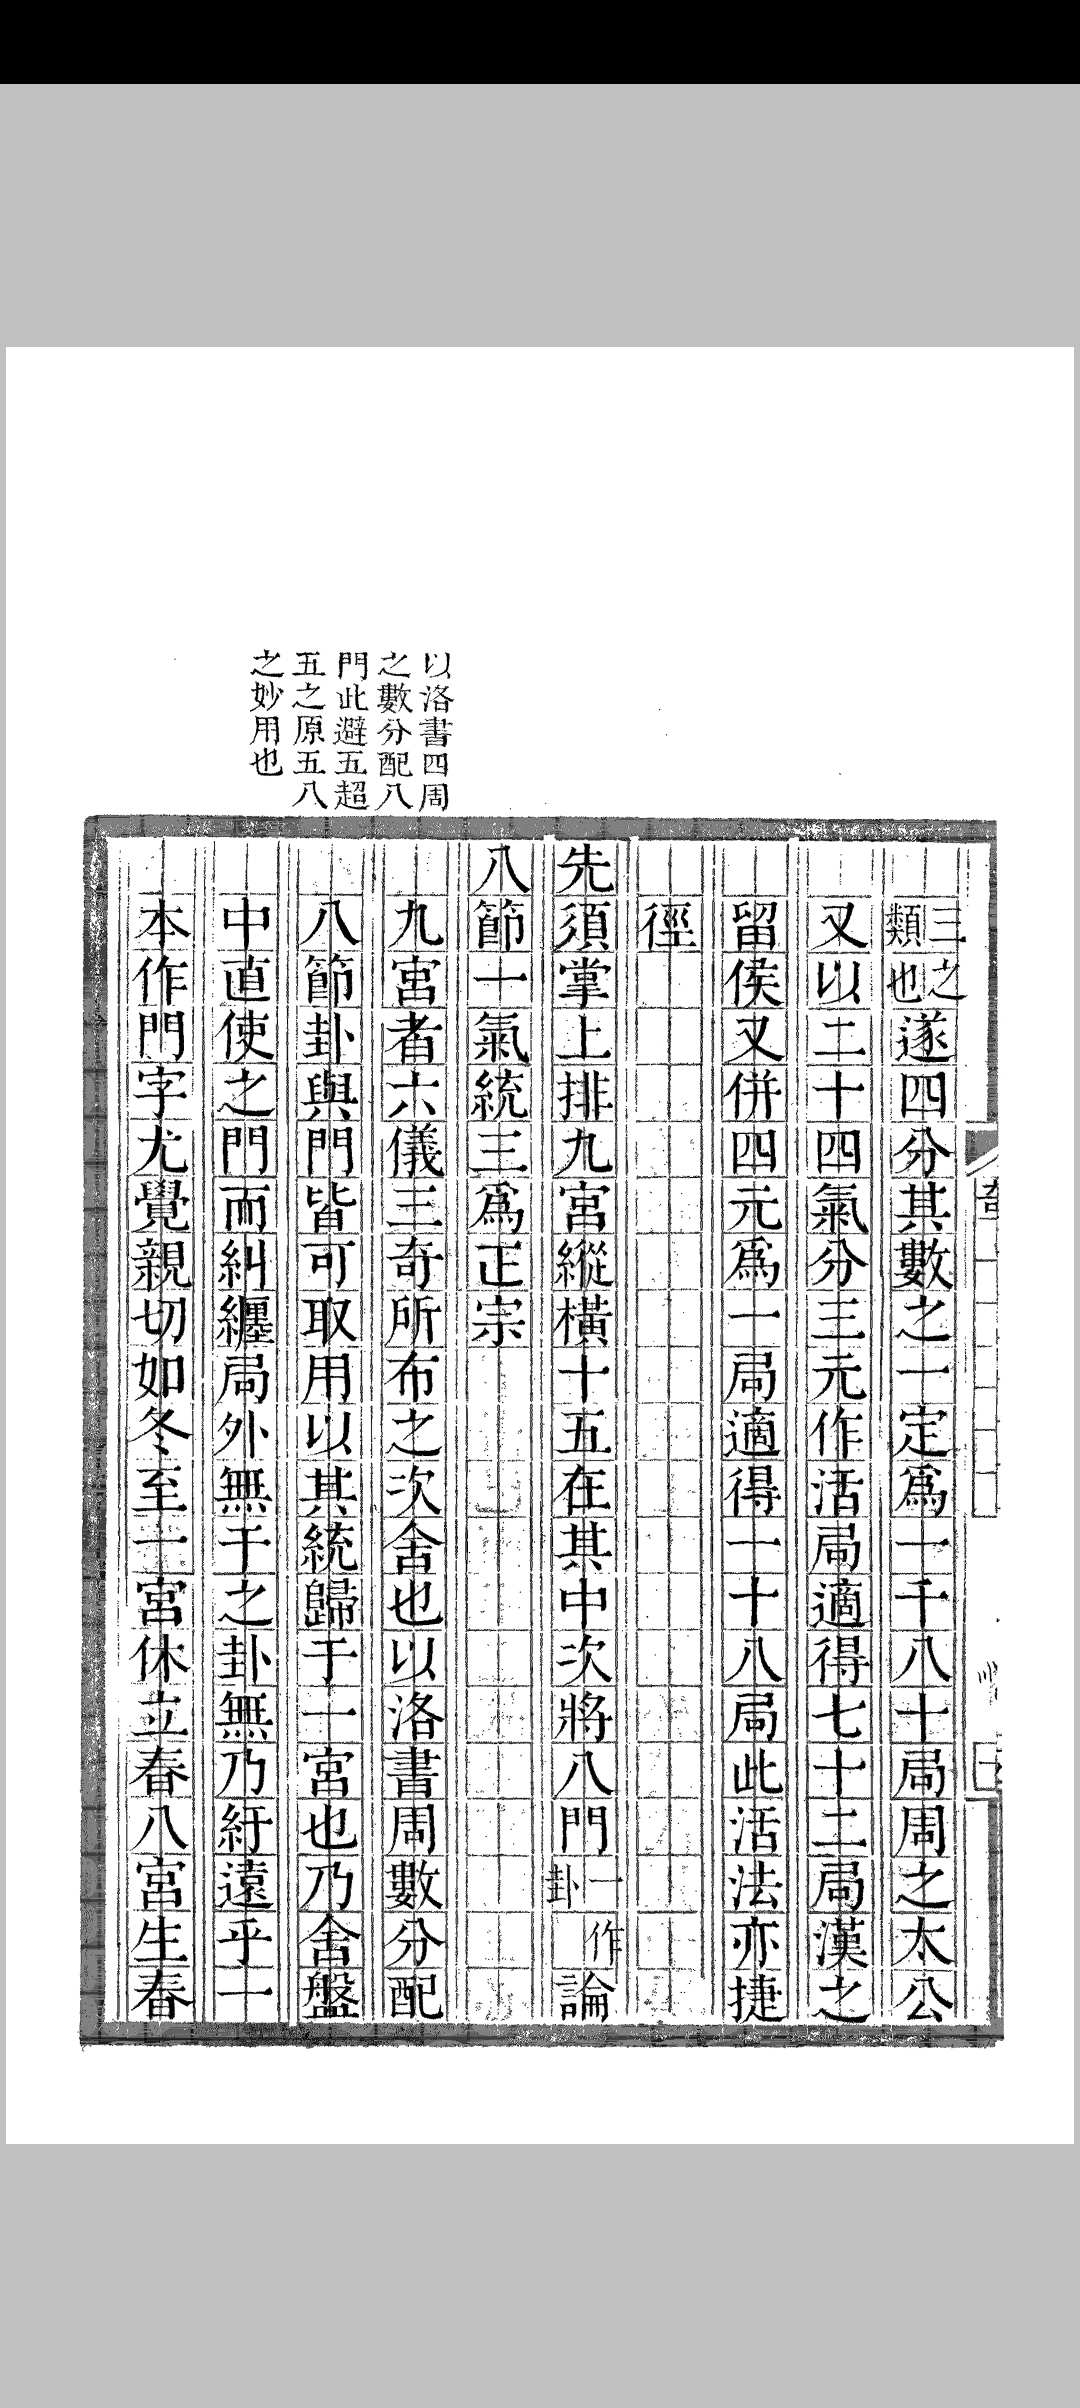 以洛書四周
之數分配八
門此避五超
五之原五八
之妙用也
三之
類也
遂四分其數之一定爲一千八十局周之太公
又以二十四氣分三元作活局適得七十二局漢之
留侯又併四元爲一局適得一十八局此活法亦捷
徑
先須掌上排九宮縱橫十五在其中次將八門
一作
卦
論
八節一氣統三爲正宗
九宮者六儀三奇所布之次舍也以洛書周數分配
八節卦與門皆可取用以其統歸于一宮也乃舍盤
中直使之門而糾纏局外無干之卦無乃紆遠乎一
本作門字尤覺親切如冬至一宮休立春八宮生春